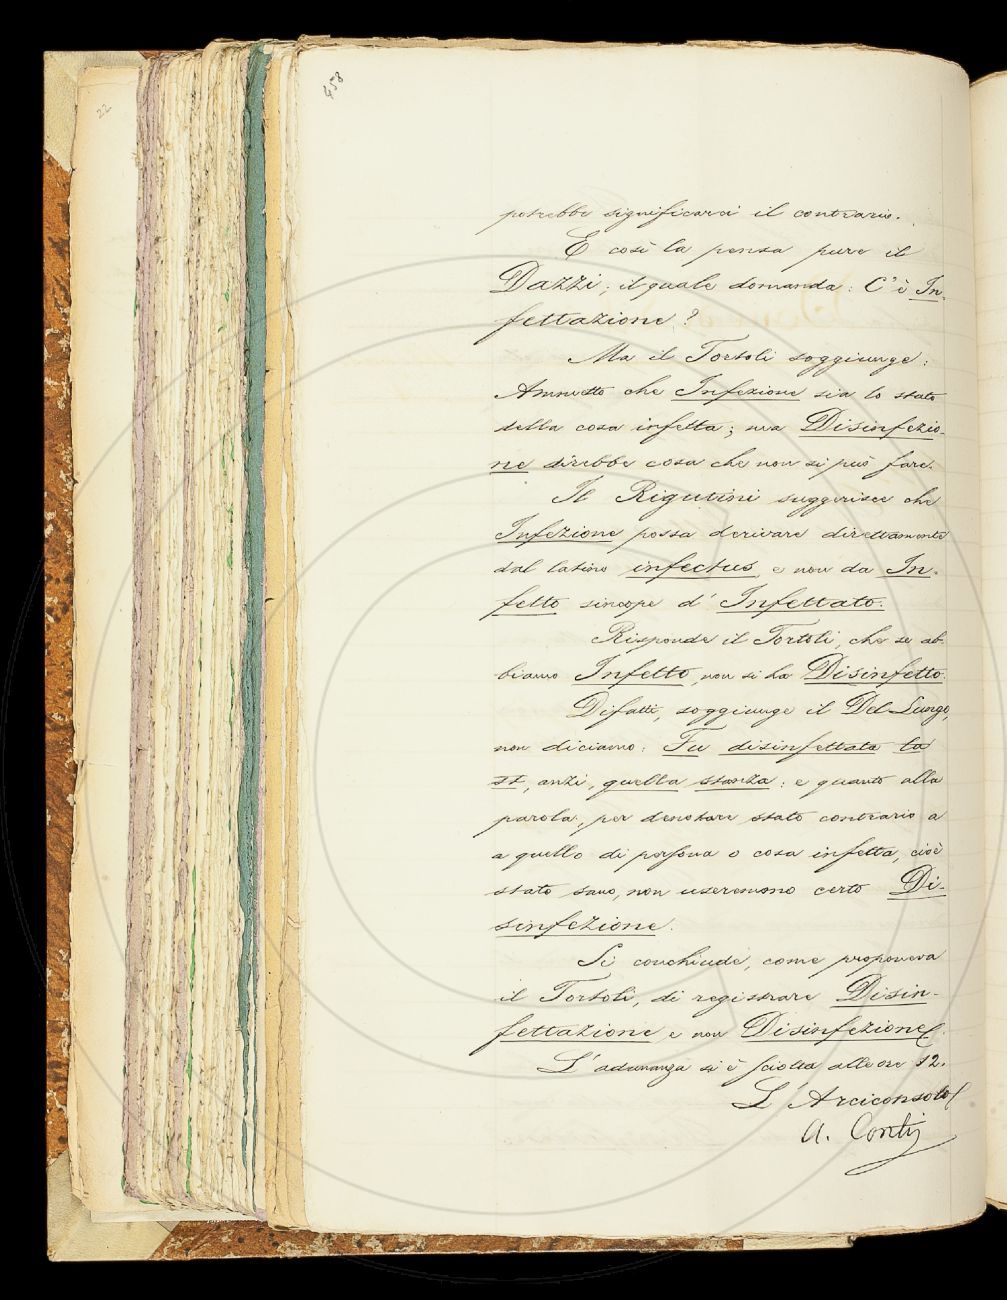 22
458
potrebbe significarci il contrario.
E così la pensa pure il
Dazzi; il quale domanda: C'è In-
fettazione?
Ma il Tortoli soggiunge:
Ammetto che Infezione sia lo stato
della cosa infetta; ma Disinfezio-
ne direbbe cosa che non si può fare.
Il Rigutini suggerisce che
Infezione possa derivare direttamente
dal latino infectus e non da In-
fetto sincope d' Infettato.
Risponde il Tortoli, che se ab-
biamo Infetto, non si ha Disinfetto.
Difatti, soggiunge il Del Lungo,
non diciamo: Fu disinfettata la
st, anzi, quella stanza: e quanto alla
parola, per denotare stato contrario a
a quello di persona o cosa infetta, cioè
stato sano, non useremmo certo Di-
sinfezione.
Si conchiude, come proponeva
il Tortoli, di registrare Disin-
fettazione e non Disinfezione.
L'adunanza si è sciolta alle ore 12.
L'Arciconsolo
A. Conti